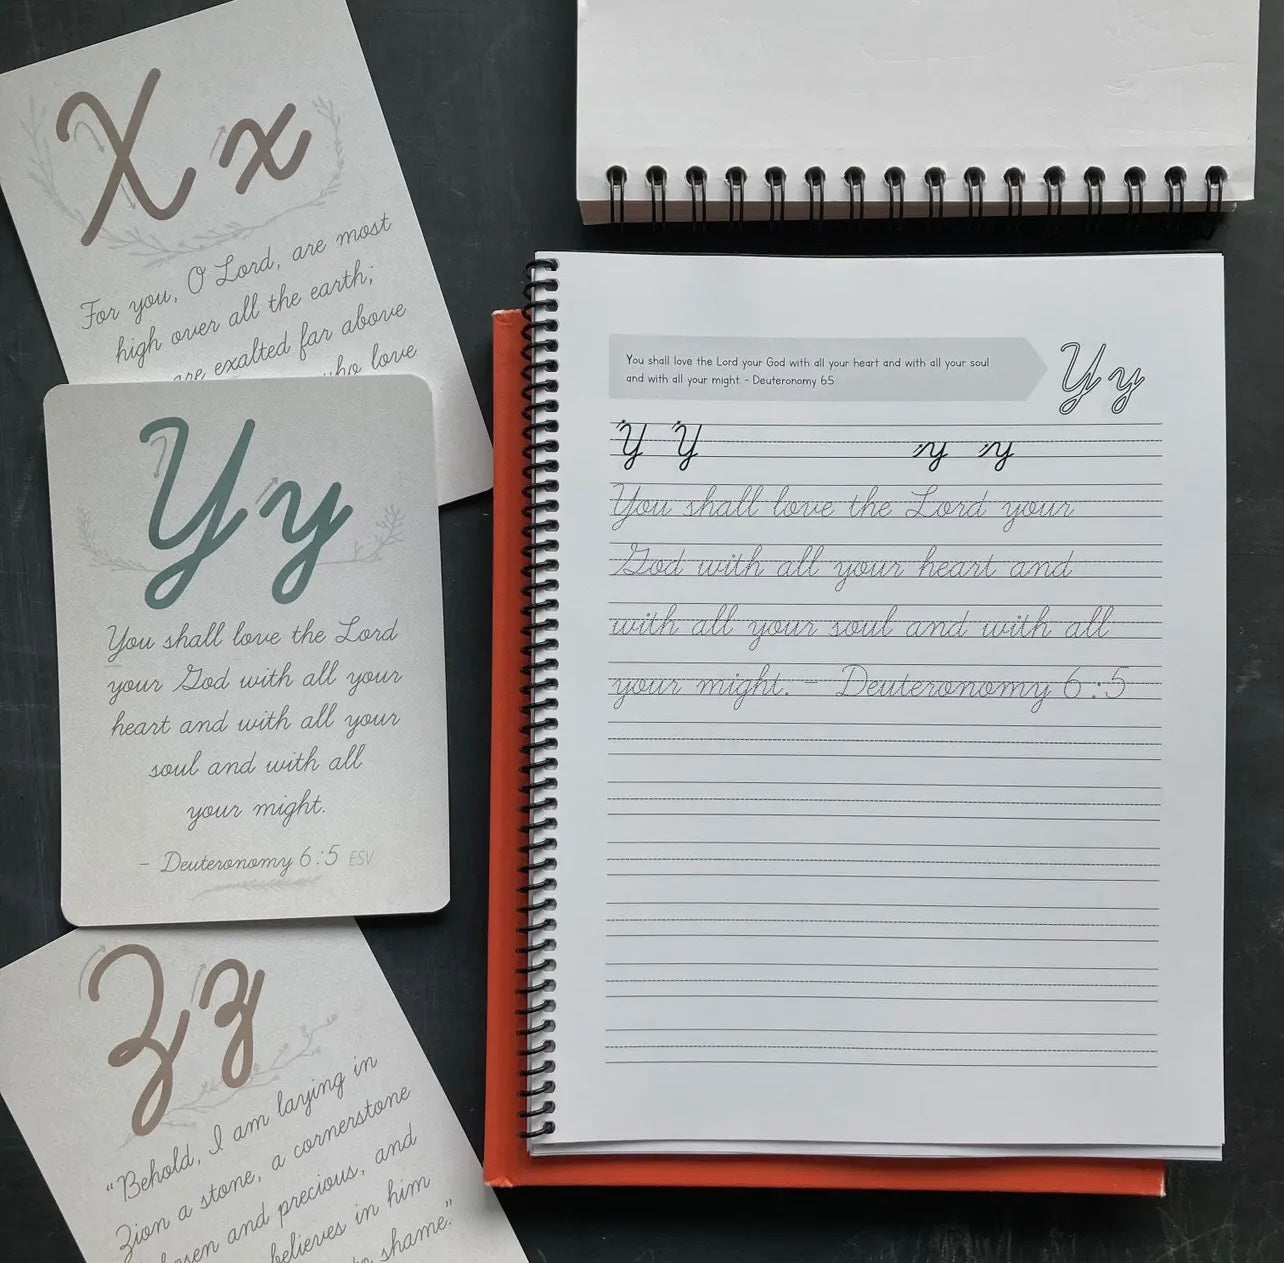 X x
For you, O Lord, are most
high over all the earth;
are exalted far above
who love
Y y
You shall love the Lord
your God with all your
heart and with all your
soul and with all
your might.
- Deuteronomy 6:5 ESV
Z z
"Behold, I am laying in
Zion a stone, a cornerstone
and precious, and
believes in him
shame."
You shall love the Lord your God with all your heart and with all your soul
and with all your might - Deuteronomy 6:5
Y y
Y Y y y
You shall love the Lord your
God with all your heart and
with all your soul and with all
your might. - Deuteronomy 6:5